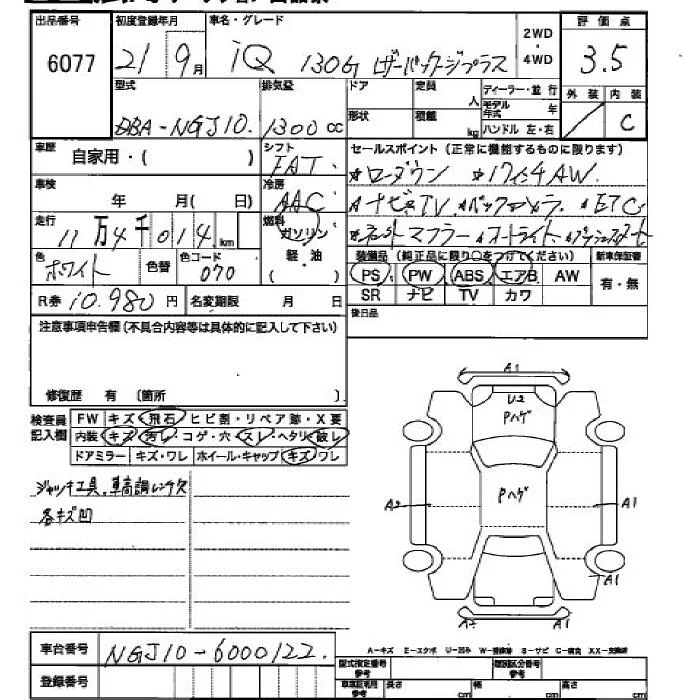 出品番号 初度登録年月 車名・グレード 2WD・4WD 評価点
6077 21 9月 iQ 130G レザーパッケージプラス 3.5
型式 排気量 ドア 定員 人 ディーラー・並行 外装 内装
DBA-NGJ10. 1300cc 形状 積載 kg モデル年式 年 ハンドル 左・右 C
車歴 自家用・( ) シフト FAT セールスポイント(正常に機能するものに限ります)
車検 年 月( 日) 冷房 AAC ★ローダウン ★17インチAW.
走行 11万4千014km 燃料 ガソリン 軽・油 ( )
★ナビ★TV ★バックカメラ. ★ETC
マフラー ★オートライト
色 ホワイト 色替 色コード 070
装備品(純正品に限り○をつけてください) 新車保証書
PS PW ABS エアB AW 有・無
SR ナビ TV カワ
R券 10.980円 名変期限 月 日 後日品
注意事項申告欄(不具合内容等は具体的に記入して下さい)
修復歴 有 〔箇所 〕
検査員記入欄 FW キズ・飛石・ヒビ割・リペア跡・X要
内装 キズ・汚レ・コゲ・穴・スレ・ヘタリ・破レ
ドアミラー キズ・ワレ ホイール・キャップ キズ・ワレ
ジャッキ工具.車高調レンチ欠
各キズ凹
A1
U2
Pハゲ
Pハゲ
A2 A1
A1
A2 A1
A-キズ E-エクボ U-凹み W-補修跡 S-サビ C-腐食 XX-交換済
車台番号 NGJ10-6000122.
登録番号
型式指定番号 参考 類別区分番号 参考
車庫証明用 参考 長さ cm 幅 cm 高さ cm